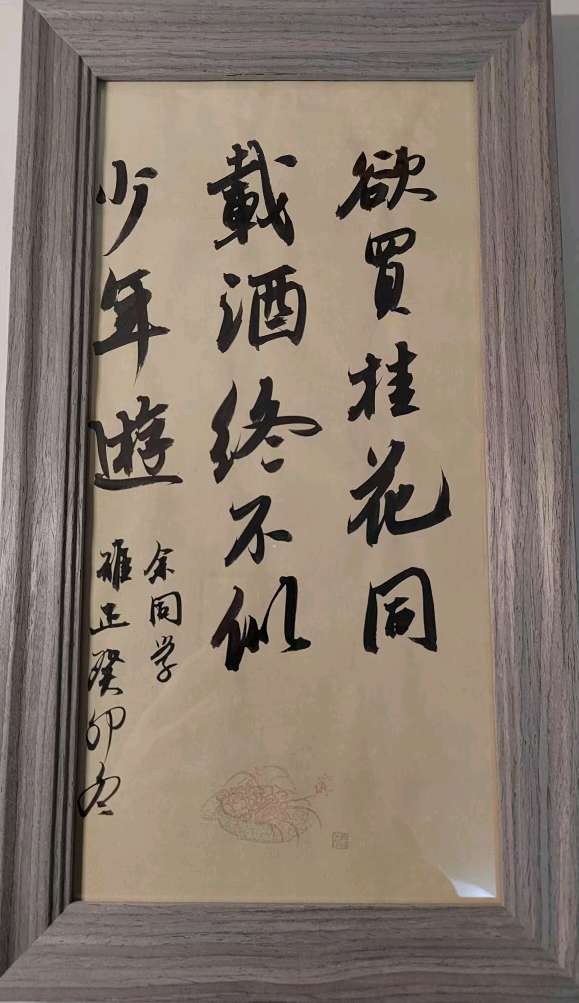 欲買桂花同
載酒終不似
少年遊
余同学
雅正癸卯冬